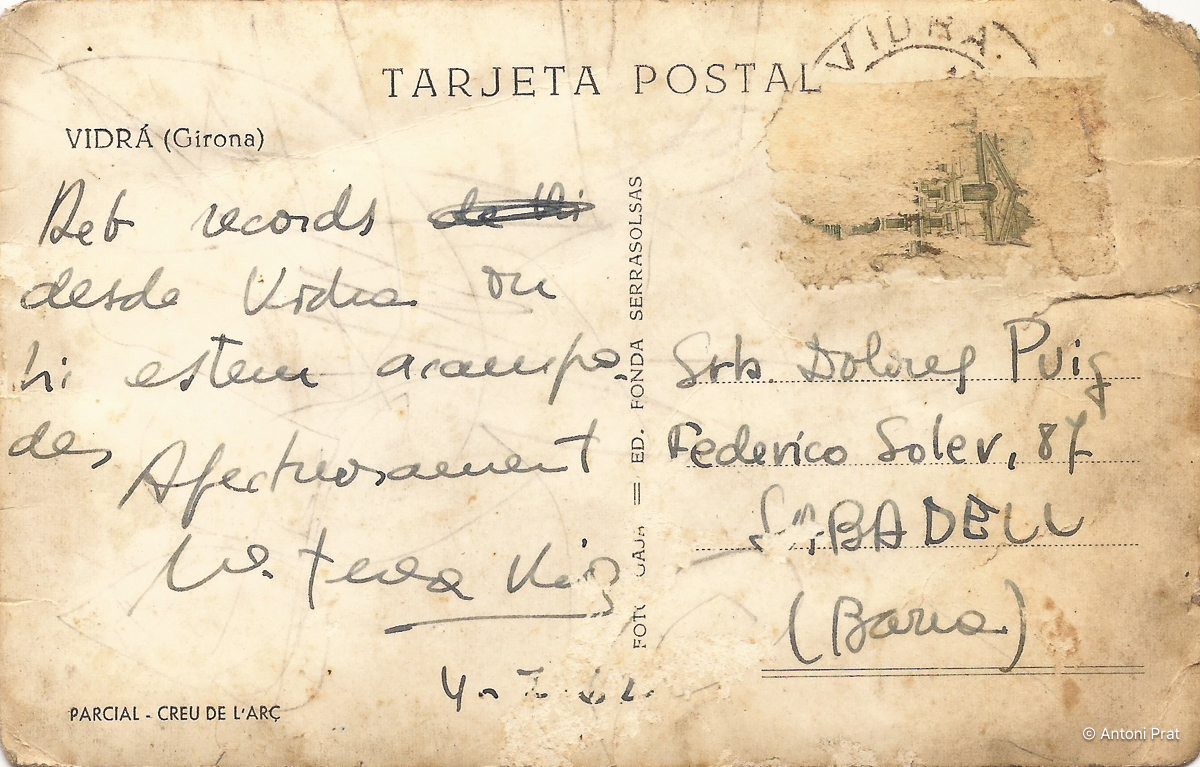 TARJETA POSTAL
VIDRÁ.
VIDRÁ (Girona)
Reb records
desde Vidra on
hi estem acampa
des
Afectuosament
Mª. Teresa
4-7-62.
PARCIAL - CREU DE L'ARÇ
ED. FONDA SERRASOLSAS
FOTO
Srta. Dolores Puig
Federico Soler, 87
SABADELL
(Barna)
© Antoni Prat